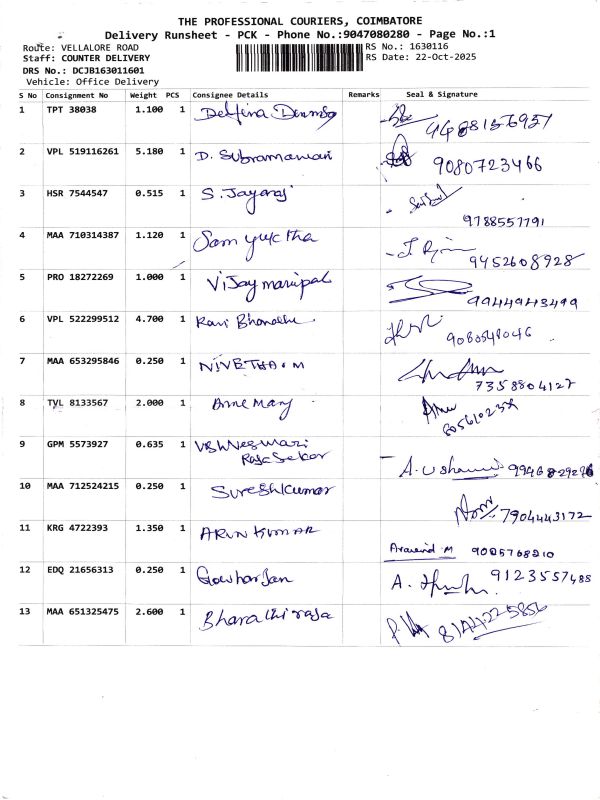 THE PROFESSIONAL COURIERS, COIMBATORE
Delivery Runsheet - PCK - Phone No.:9047080280 - Page No.:1
Route: VELLALORE ROAD
RS No.: 1630116
Staff: COUNTER DELIVERY
RS Date: 22-Oct-2025
DRS No.: DCJB163011601
Vehicle: Office Delivery
S No Consignment No Weight PCS Consignee Details Remarks Seal & Signature
1 TPT 38038 1.100 1 Delfina
2 VPL 519116261 5.180 1 D. Subramanian 9080723466
3 HSR 7544547 0.515 1 S. Jayaraj 9788557791
4 MAA 710314387 1.120 1 Samyuktha 9452608928
5 PRO 18272269 1.000 1 Vijay manipal 9944943499
6 VPL 522299512 4.700 1 Ravi 9080548046
7 MAA 653295846 0.250 1 NIVETHA . M 7358804127
8 TVL 8133567 2.000 1 Anne Mary
9 GPM 5573927 0.635 1 Vishweswari
Raja Sekar
A. Usharani
10 MAA 712524215 0.250 1 Sureshkumar 7904443172
11 KRG 4722393 1.350 1 ARUN KUMAR
Aravind M 9005768210
12 EDQ 21656313 0.250 1 Gowhar Jan A. 9123557488
13 MAA 651325475 2.600 1 Bharathi raja